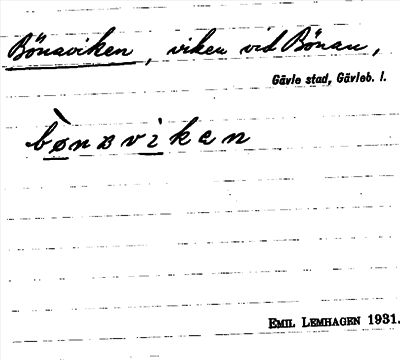 Bönaviken, viken vid Bönan,
Gävle stad, Gävleb. l.
bø̀navikən
EMIL LEMHAGEN 1931.